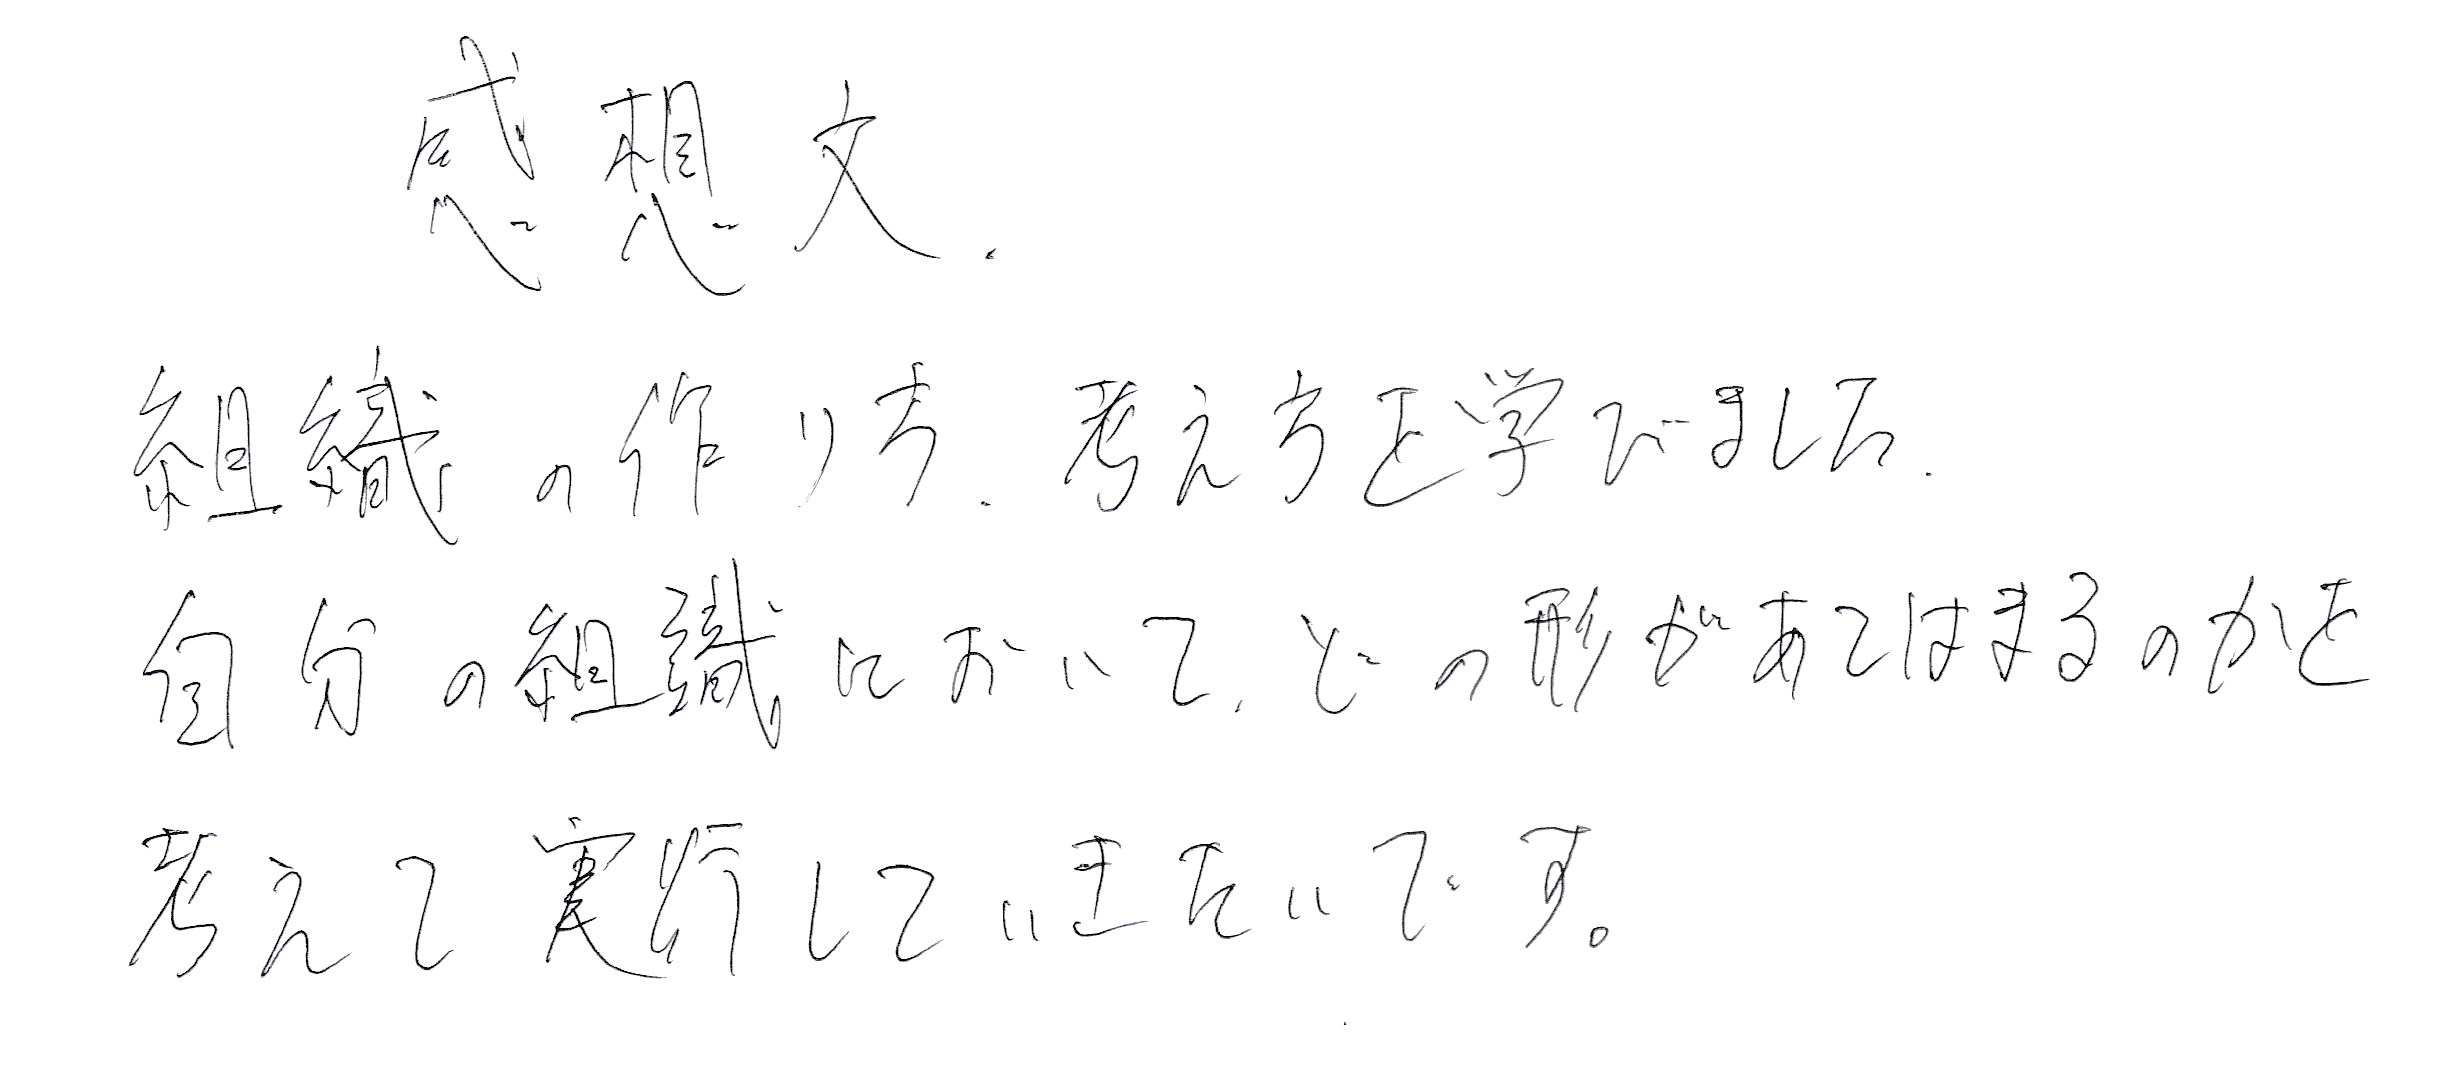 感想文.
組織の作り方、考え方を学びました.
自分の組織において、どの形があてはまるのかを
考えて実行していきたいです。